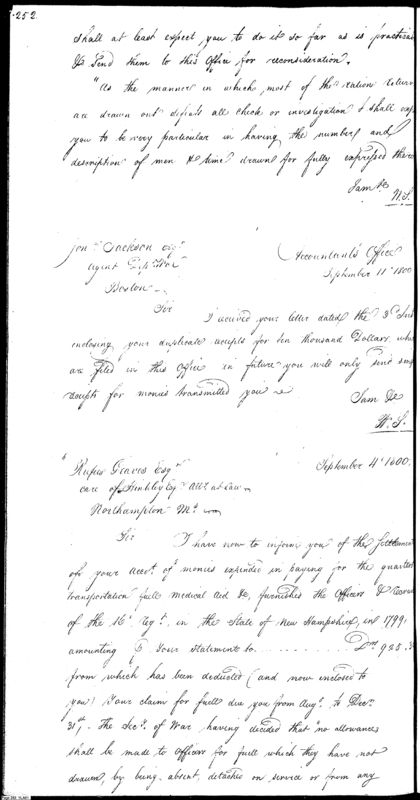 252
shall at least expect you to do it so far as is practica
& send them to this Office for reconsideration.
"As the manner in which most of the ration return
are drawn out defeats all check or investigation I shall
you to be very particular in having the number and
description of men & time drawn for fully expressed there
I am &c
W. S.
Jonn Jackson esqr
Agent Dept War
Boston
Accountant's Office
September 11th 1800
Sir
I received your letter dated the 3d Inst
enclosing your duplicate receipts for ten thousand Dollars, whic
are filed in this Office in future you will only send
receipts for monies transmitted you
I am &c
W. S.
Rufus Graves Esqr
care of Hinkley Esqr Atty at Law
Northampton Ms
September 4th 1800.
Sir
I have now to inform you of the Settlement
of your Acct. of monies expended in paying for the quarters
transportation fuell medical Aid &c, furnished the Officers & Recruits
of the 16th Regt. in the State of New Hampshire, in 1799,
amounting by your Statements to .......... Drs 928.3
from which has been deducted (and now enclosed to
you) Your claim for fuell due you from Augt. to Decr.
31st, - The Secy. of War having decided that "no allowances
shall be made to Officers for fuell which they have not
drawn, by being absent, detached on service or from any